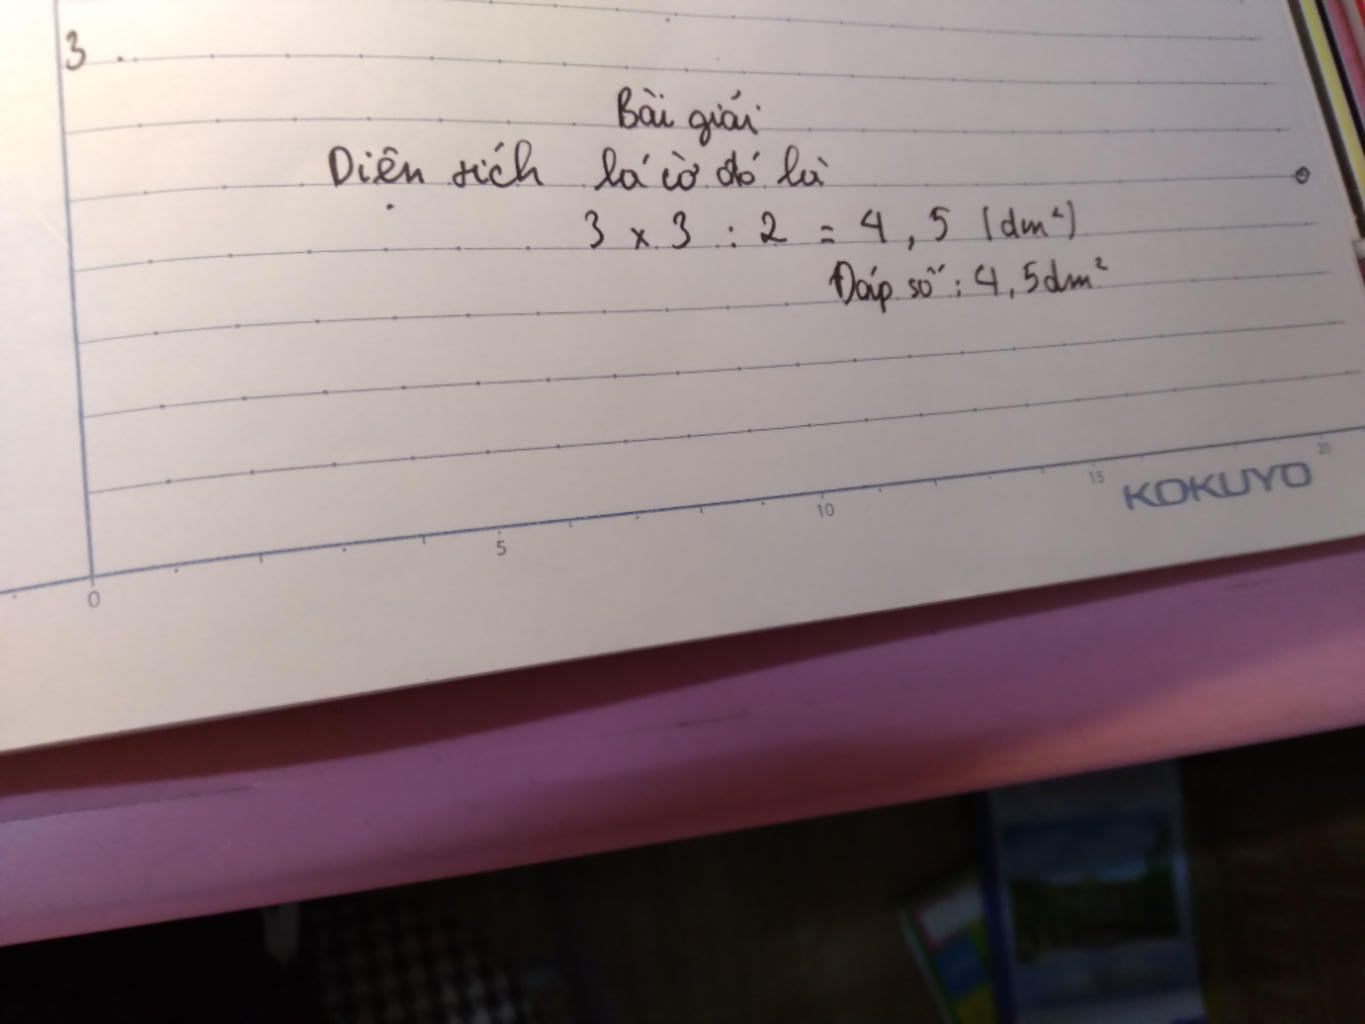 3.
Bài giải
Diện tích lá cờ đó là
3 x 3 : 2 = 4,5 (dm²)
Đáp số: 4,5dm²
0 5 10 15 20
KOKUYO